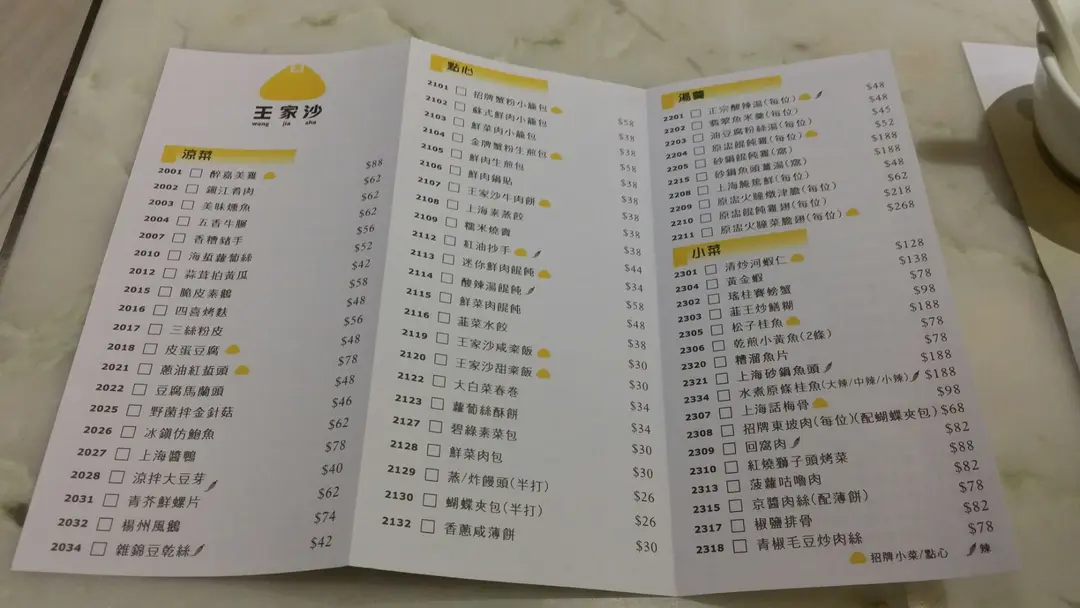 王家沙
wang jia sha
涼菜
2001 醉嘉美雞 $88
2002 鎮江肴肉 $62
2003 美味燻魚 $62
2004 五香牛𦟌 $62
2007 香糟豬手 $56
2010 海蜇蘿蔔絲 $52
2012 蒜茸拍黃瓜 $42
2015 脆皮素鵝 $58
2016 四喜烤麩 $48
2017 三絲粉皮 $56
2018 皮蛋豆腐 $48
2021 蔥油紅蜇頭 $78
2022 豆腐馬蘭頭 $48
2025 野菌拌金針菇 $46
2026 冰鎮仿鮑魚 $62
2027 上海醬鴨 $78
2028 涼拌大豆芽 $40
2031 青芥鮮螺片 $62
2032 楊州風鵝 $74
2034 雜錦豆乾絲 $42
點心
2101 招牌蟹粉小籠包 $58
2102 蘇式鮮肉小籠包 $38
2103 鮮菜肉小籠包 $38
2104 金牌蟹粉生煎包 $58
2105 鮮肉生煎包 $38
2106 鮮肉鍋貼 $38
2107 王家沙牛肉餅 $38
2108 上海素蒸餃 $38
2109 糯米燒賣 $38
2112 紅油抄手 $44
2113 迷你鮮肉餛飩 $34
2114 酸辣湯餛飩 $58
2115 鮮菜肉餛飩 $48
2116 韮菜水餃 $38
2119 王家沙咸粢飯 $30
2120 王家沙甜粢飯 $30
2122 大白菜春卷 $34
2123 蘿蔔絲酥餅 $34
2127 碧綠素菜包 $30
2128 鮮菜肉包 $30
2129 蒸/炸饅頭(半打) $26
2130 蝴蝶夾包(半打) $26
2132 香蔥咸薄餅 $30
湯羹
2201 正宗酸辣湯(每位) $48
2202 翡翠魚米羹(每位) $48
2203 油豆腐粉絲湯(每位) $45
2204 原盅餛飩雞(每位) $52
2205 砂鍋餛飩雞(窩) $188
2215 砂鍋魚頭薑湯(窩) $188
2208 上海醃篤鮮(每位) $48
2209 原盅火腫燉津膽(每位) $62
2210 原盅餛飩雞翅(每位) $218
2211 原盅火腫菜膽翅(每位) $268
小菜
2301 清炒河蝦仁 $128
2304 黃金蝦 $138
2302 瑤柱賽螃蟹 $78
2303 韮王炒鱔糊 $98
2305 松子桂魚 $188
2306 乾煎小黃魚(2條) $78
2320 糟溜魚片 $78
2321 上海砂鍋魚頭 $188
2334 水煮原條桂魚(大辣/中辣/小辣) $188
2307 上海話梅骨 $98
2308 招牌東坡肉(每位)(配蝴蝶夾包) $68
2309 回窩肉 $82
2310 紅燒獅子頭烤菜 $88
2313 菠蘿咕嚕肉 $82
2315 京醬肉絲(配薄餅) $78
2317 椒鹽排骨 $82
2318 青椒毛豆炒肉絲 $78
招牌小菜/點心 辣